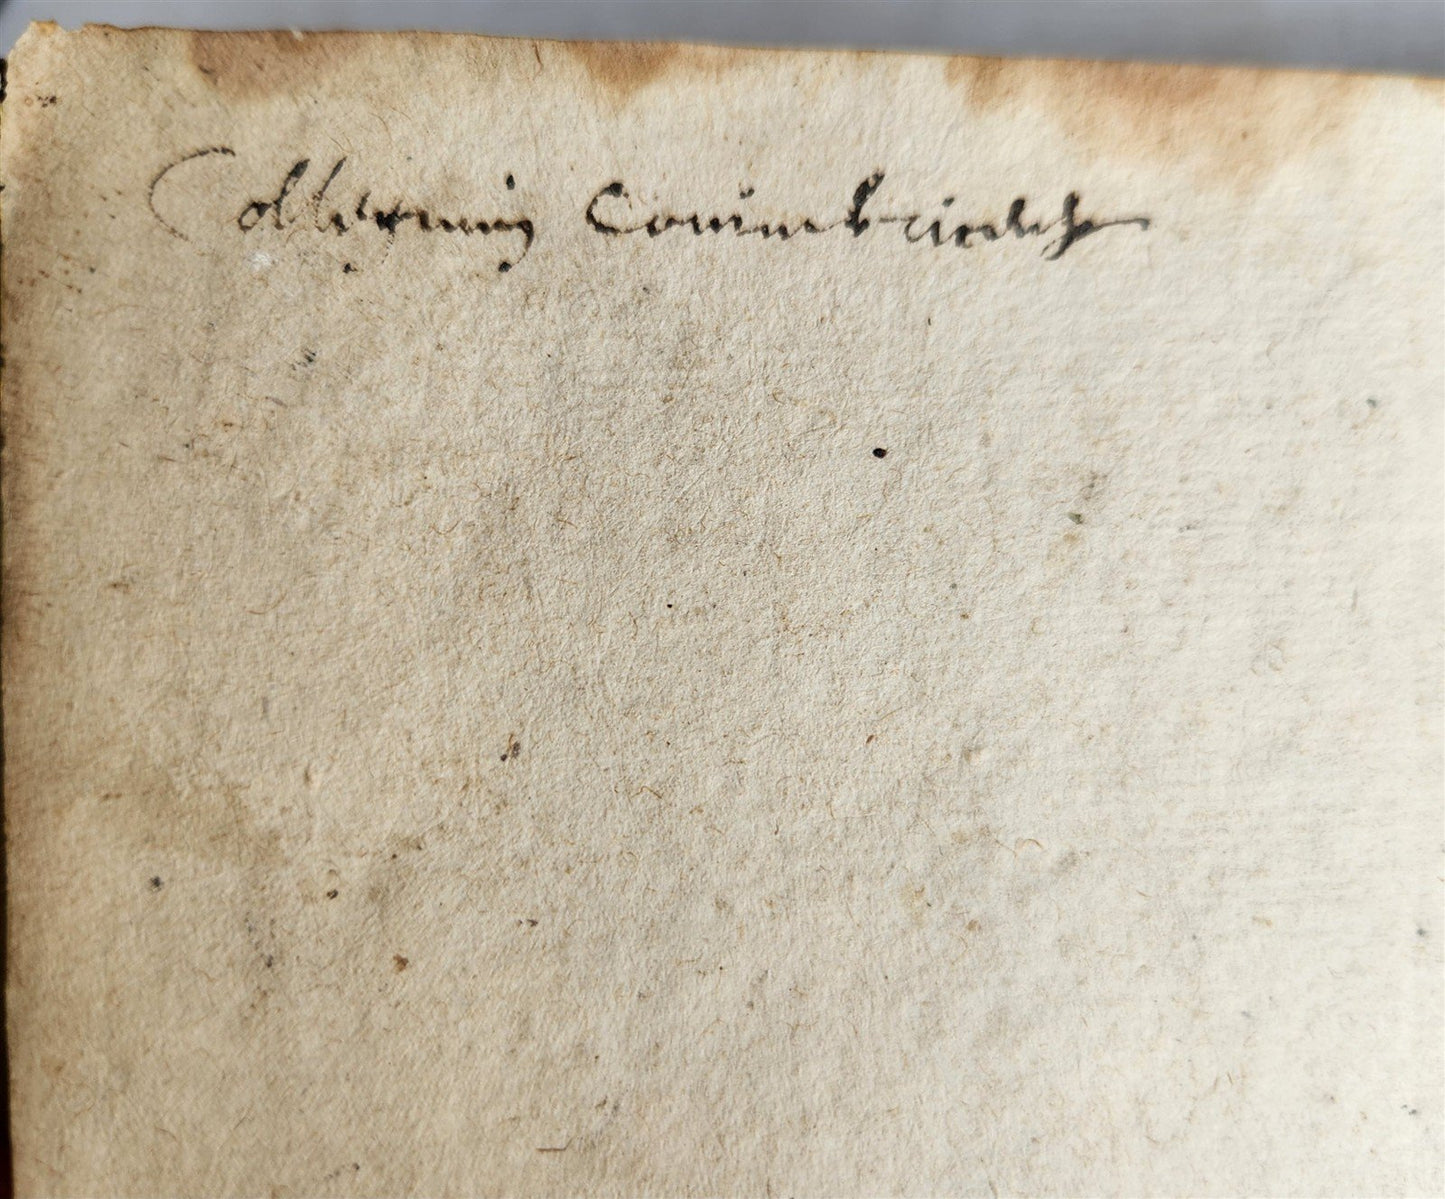 Collegium Conimbricense